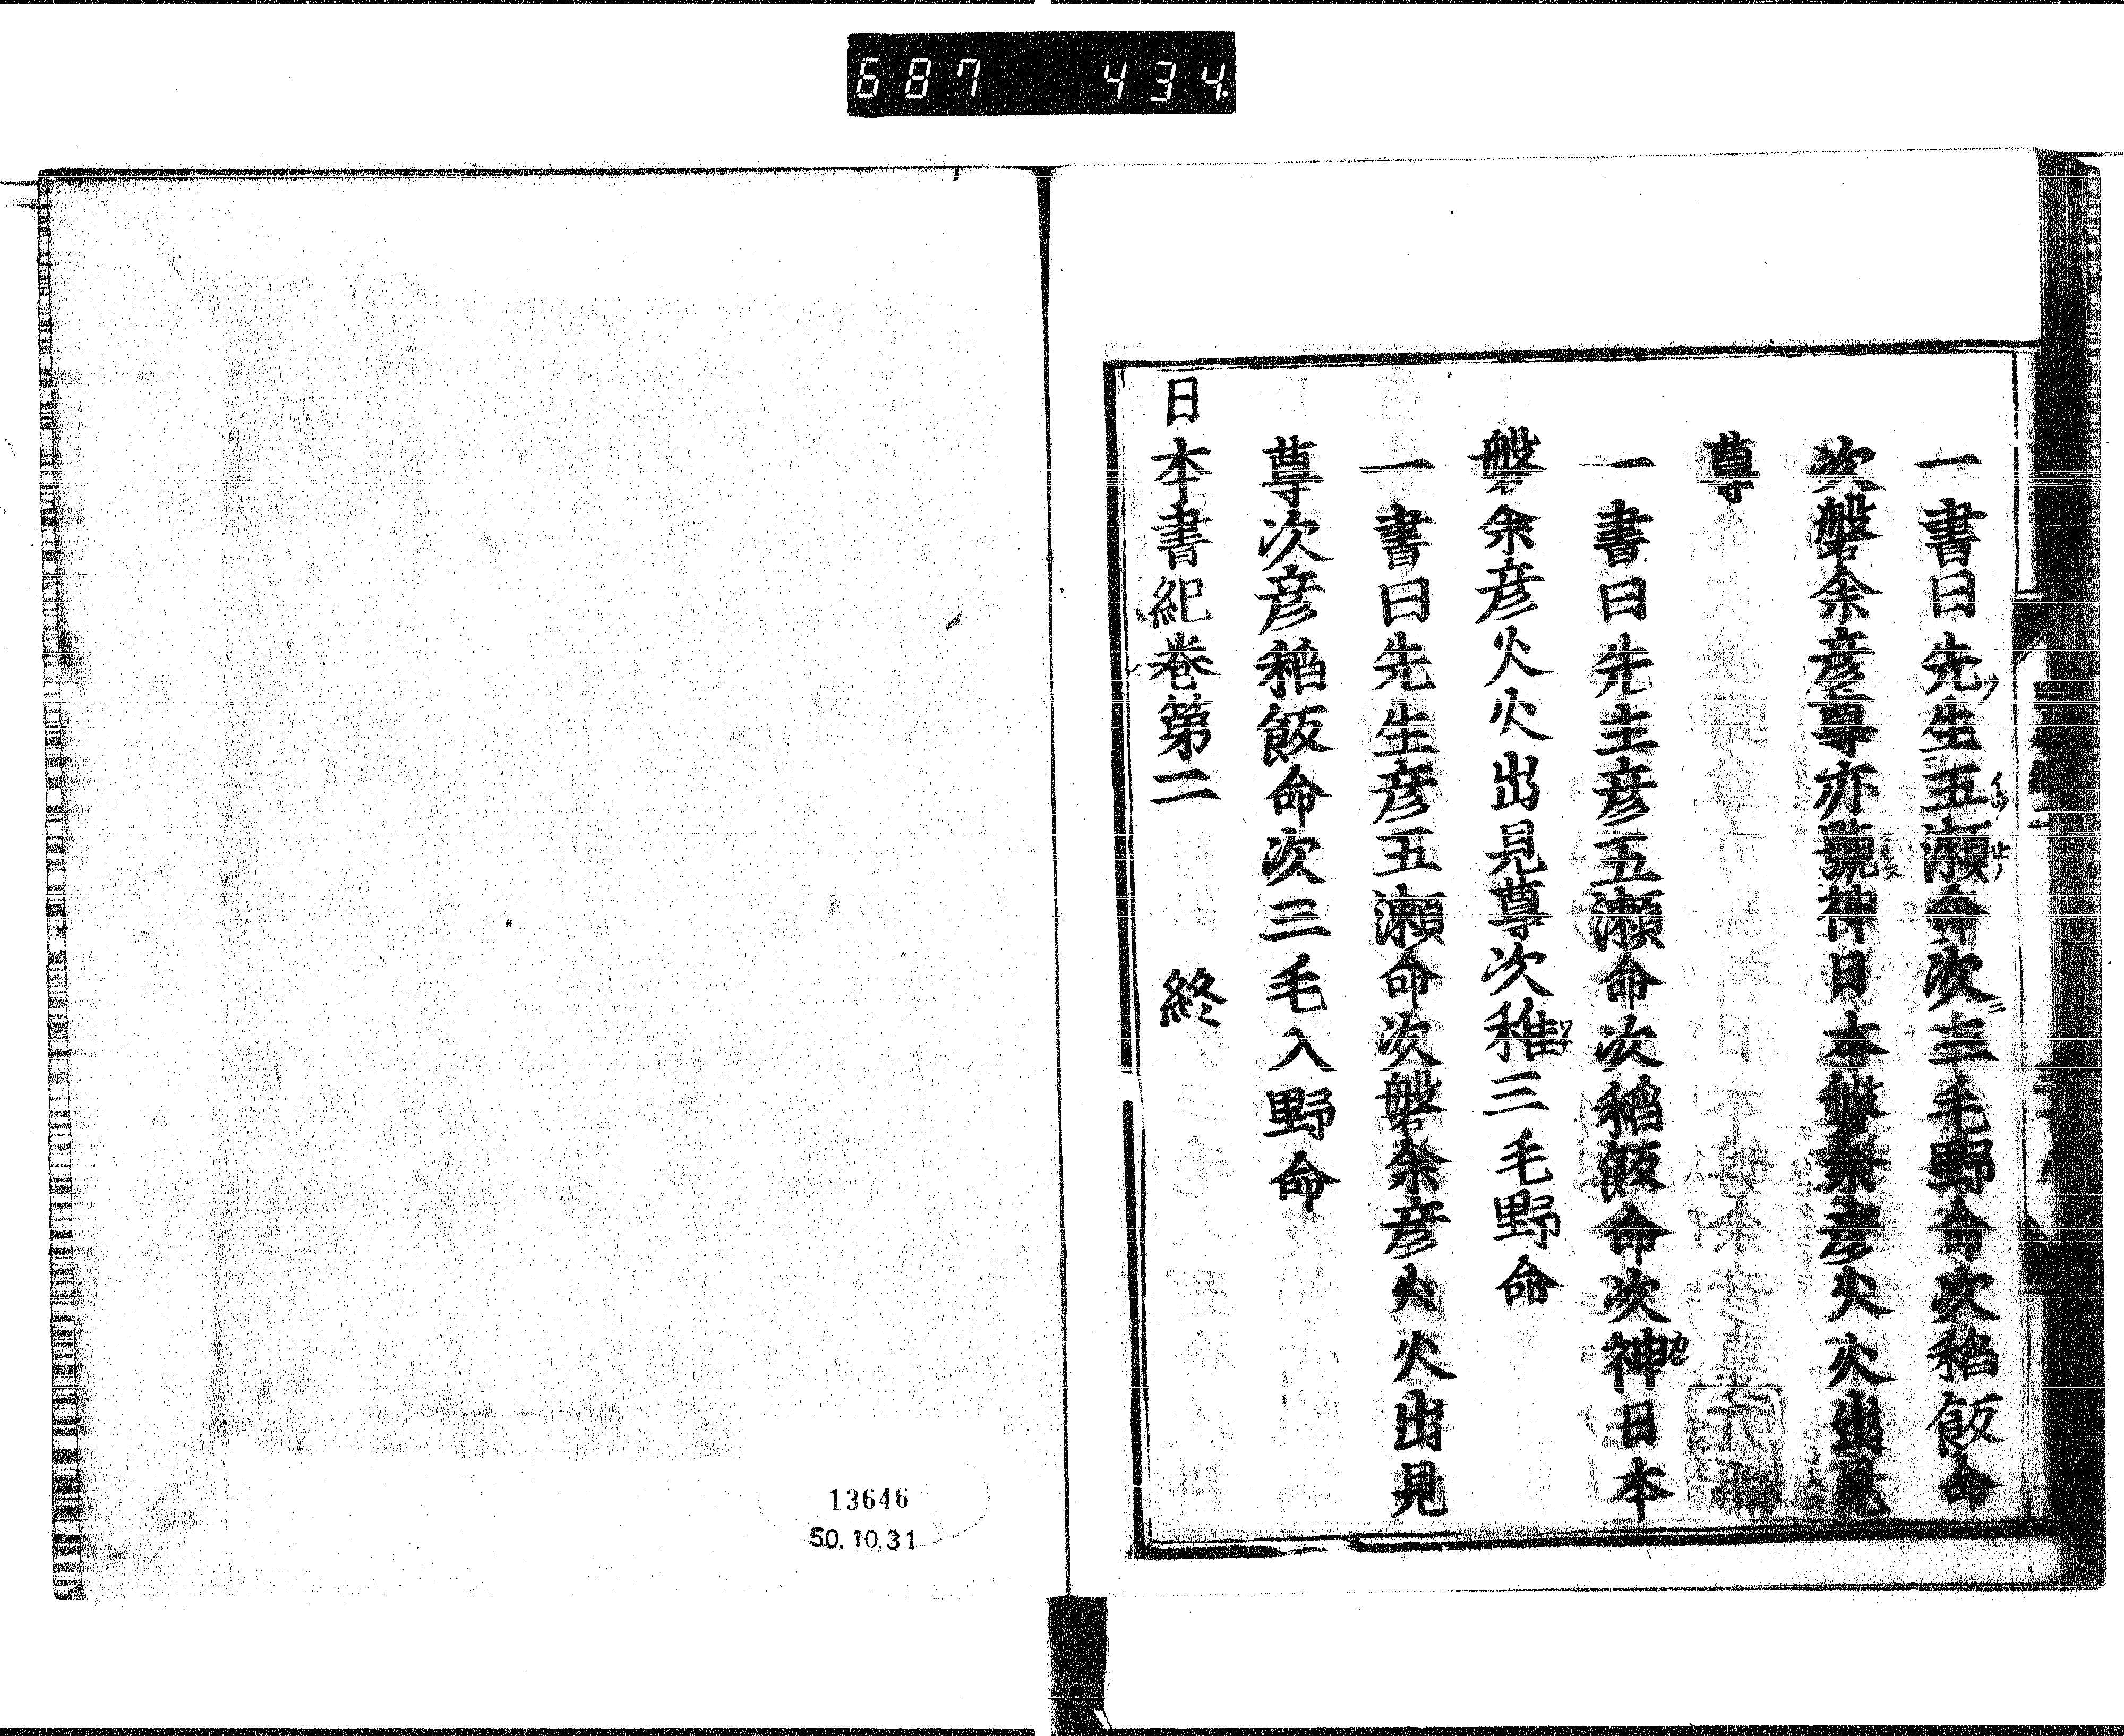 687 434.
一書曰先生五瀬命次三毛野命次稻飯命
次磐余彦尊亦號神日本磐余彦火火出見
尊
一書曰先生彦五瀬命次稻飯命次神日本
磐余彦火火出見尊次稚三毛野命
一書曰先生彦五瀬命次磐余彦火火出見
尊次彦稻飯命次三毛入野命
日本書紀卷第二 終
13646
50.10.31